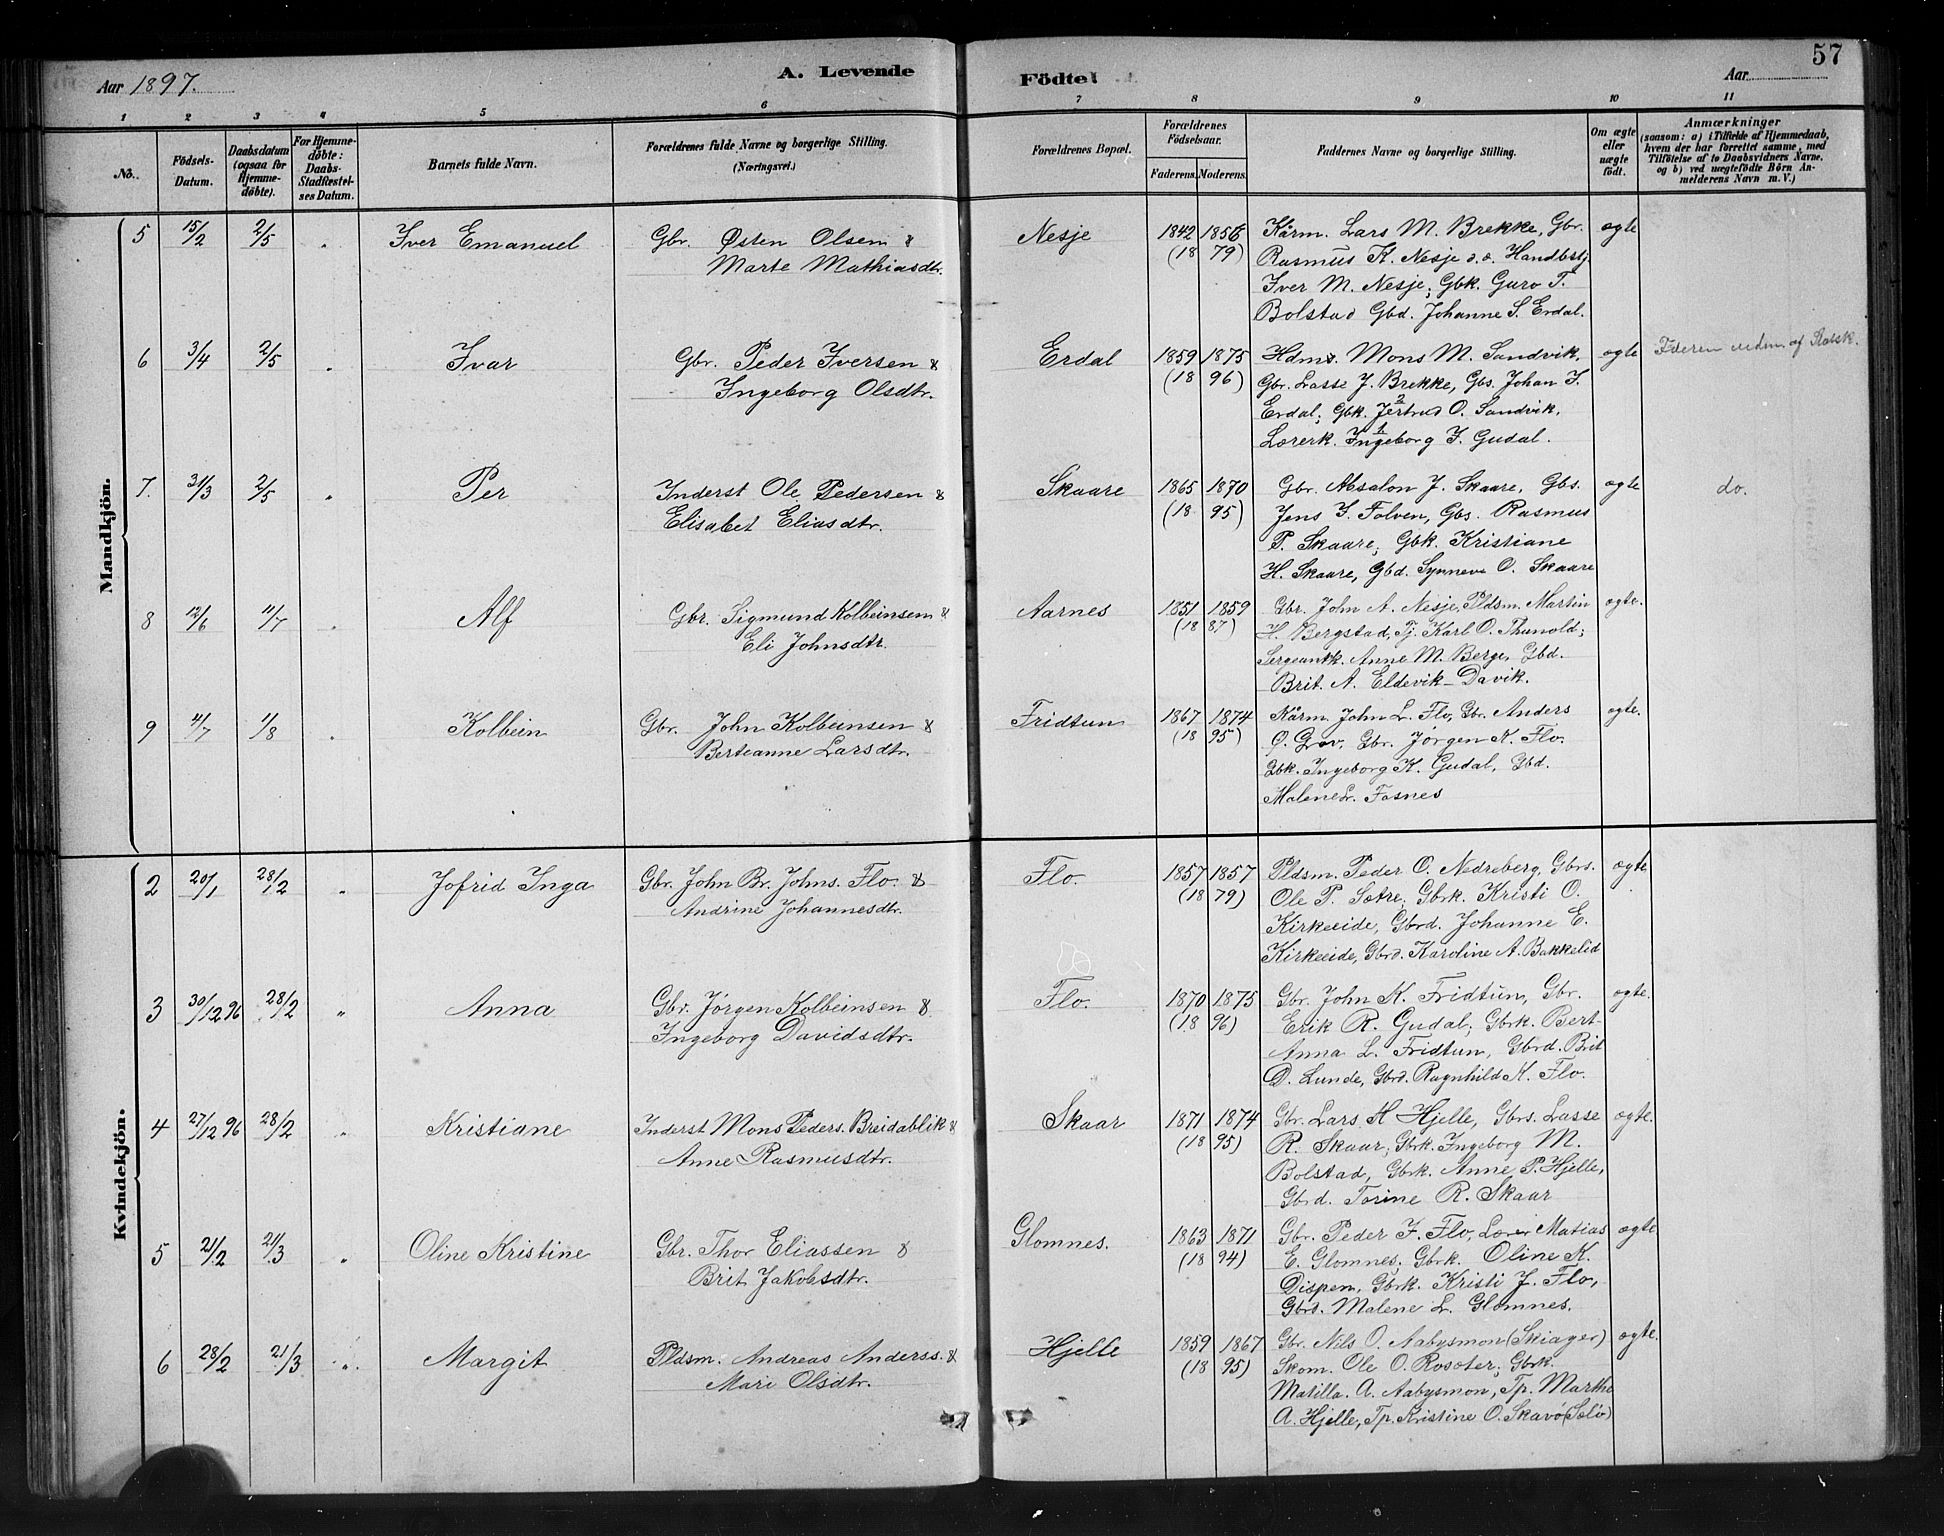 57
Aar 1897.
A. Levende
Födte.
Aar
1 2 3 4 5 6 7 8 9 10 11
No.
Födsels-Datum.
Daabsdatum (ogsaa for Hjemme-döbte).
For Hjemme-döbte: Daabs-Stadfæstel-ses Datum.
Barnets fulde Navn.
Forældrenes fulde Navne og borgerlige Stilling. (Næringsvei.)
Forældrenes Bopæl.
Forældrenes Födselsaar.
Faderens. Moderens.
Faddernes Navne og borgerlige Stilling.
Om ægte eller uægte födt.
Anmærkninger
(saasom: a) i Tilfælde af Hjemmedaab,
hvem der har forrettet samme, med
Tilföielse af to Daabsvidners Navne,
og b) ved uægtefödte Börn An-
melderens Navn m. V.)
Mandkjön.
5 15/2 2/5 " Iver Emanuel Gbr. Østen Olsen & Nesje 1842 1856 Kårm. Lars M. Brekke, Gbr. ægte
Marte Mathiasdtr. (18 79) Rasmus K. Nesje d.e. Handbstj.
Iver M. Nesje; Gbk. Guro T.
Bolstad Gbd. Johanne S. Erdal.
6 3/4 2/5 " Ivar Gbr. Peder Iversen & Erdal 1859 1875 Hdms. Mons M. Sandvik, ægte Faderen udm. af Statsk.
Ingeborg Olsdtr. (18 96) Gbr. Lasse J. Brekke, Gbs. Johan I.
Erdal; Gbk. Jertrud 2 O. Sandvik,
Lærerk. Ingeborg 1 I. Gudal.
7. 31/3 2/5 " Per Inderst Ole Pedersen & Skaare 1865 1870 Gbr. Absalon J. Skaare, Gbs. ægte do.
Elisabet Eliasdtr. (18 95) Jens I. Folven, Gbs. Rasmus
P. Skaare; Gbk. Kristiane
H. Skaare, Gbd. Synneve O. Skaare
8 12/6 11/7 " Alf Gbr. Sigmund Kolbeinsen & Aarnes 1851 1859 Gbr. John A. Nesje, Pldsm. Martin ægte.
Eli Johnsdtr. (18 87) H. Bergstad, Tj. Karl O. Thunold;
Sergeantk. Anne M. Berge, Gbd.
Brit. A. Eldevik-Davik.
9 11/7 1/8 " Kolbein Gbr. John Kolbeinsen & Fridtun 1867 1874 Kårm. John L. Flo, Gbr. Anders ægte.
Berteanne Larsdtr. (18 95) O. Grov, Gbr. Jørgen K. Flo.
Gbk. Ingeborg K. Gudal, Gbd.
Malene L. Fosnes
Kvindekjön.
2 20/1 28/2 " Jofrid Inga Gbr. John Br. Johns. Flo. & Flo. 1857 1857 Pldsm. Peder O. Nedreberg, Gbrs. ægte
Andrine Johannesdtr. (18 79) Ole P. Sætre; Gbrk. Kristi O.
Kirkeeide, Gbrd. Johanne E.
Kirkeeide, Gbrd. Karoline A. Bakkelid
3 30/12 96 28/2 " Anna Gbr. Jørgen Kolbeinsen & Flo. 1870 1875 Gbr. John K. Fridtun, Gbr. ægte.
Ingeborg Davidsdtr. (18 96) Erik R. Gudal; Gbrk. Bert-
Anna L. Fridtun, Gbrd. Brit
D. Lunde, Gbrd. Ragnhild K. Flo.
4 27/12 96 28/2 " Kristiane Inderst Mons Peders. Breidablik & Skaar 1871 1874 Gbr. Lars H Hjelle, Gbrs. Lasse ægte.
Anne Rasmusdtr. (18 95) R. Skaar; Gbrk. Ingeborg M.
Bolstad, Gbrk. Anne P. Hjelle,
Gbrd. Torine R. Skaar
5 21/2 21/3 " Oline Kristine Gbr. Thor Eliassen & Glomnes. 1863 1871 Gbr. Peder J. Flo, Lærer Matias ægte
Brit Jakobsdtr. (18 94) E. Glomnes; Gbrk. Oline K.
Dispen, Gbrk. Kristi J. Flo,
Gbrd. Malene L. Glomnes.
6 28/2 21/3 " Margit Pldsm. Andreas Anderss. & Hjelle 1859 1867 Gbr. Nils O. Aabysmon (Skiager) ægte.
Mari Olsdtr. (18 95) Skom. Ole O. Rosoter; Gbrk.
Matilla. A. Aabysmon, Tp. Marthe
A. Hjelle, Tp. Kristine O. Skavø (Selö)